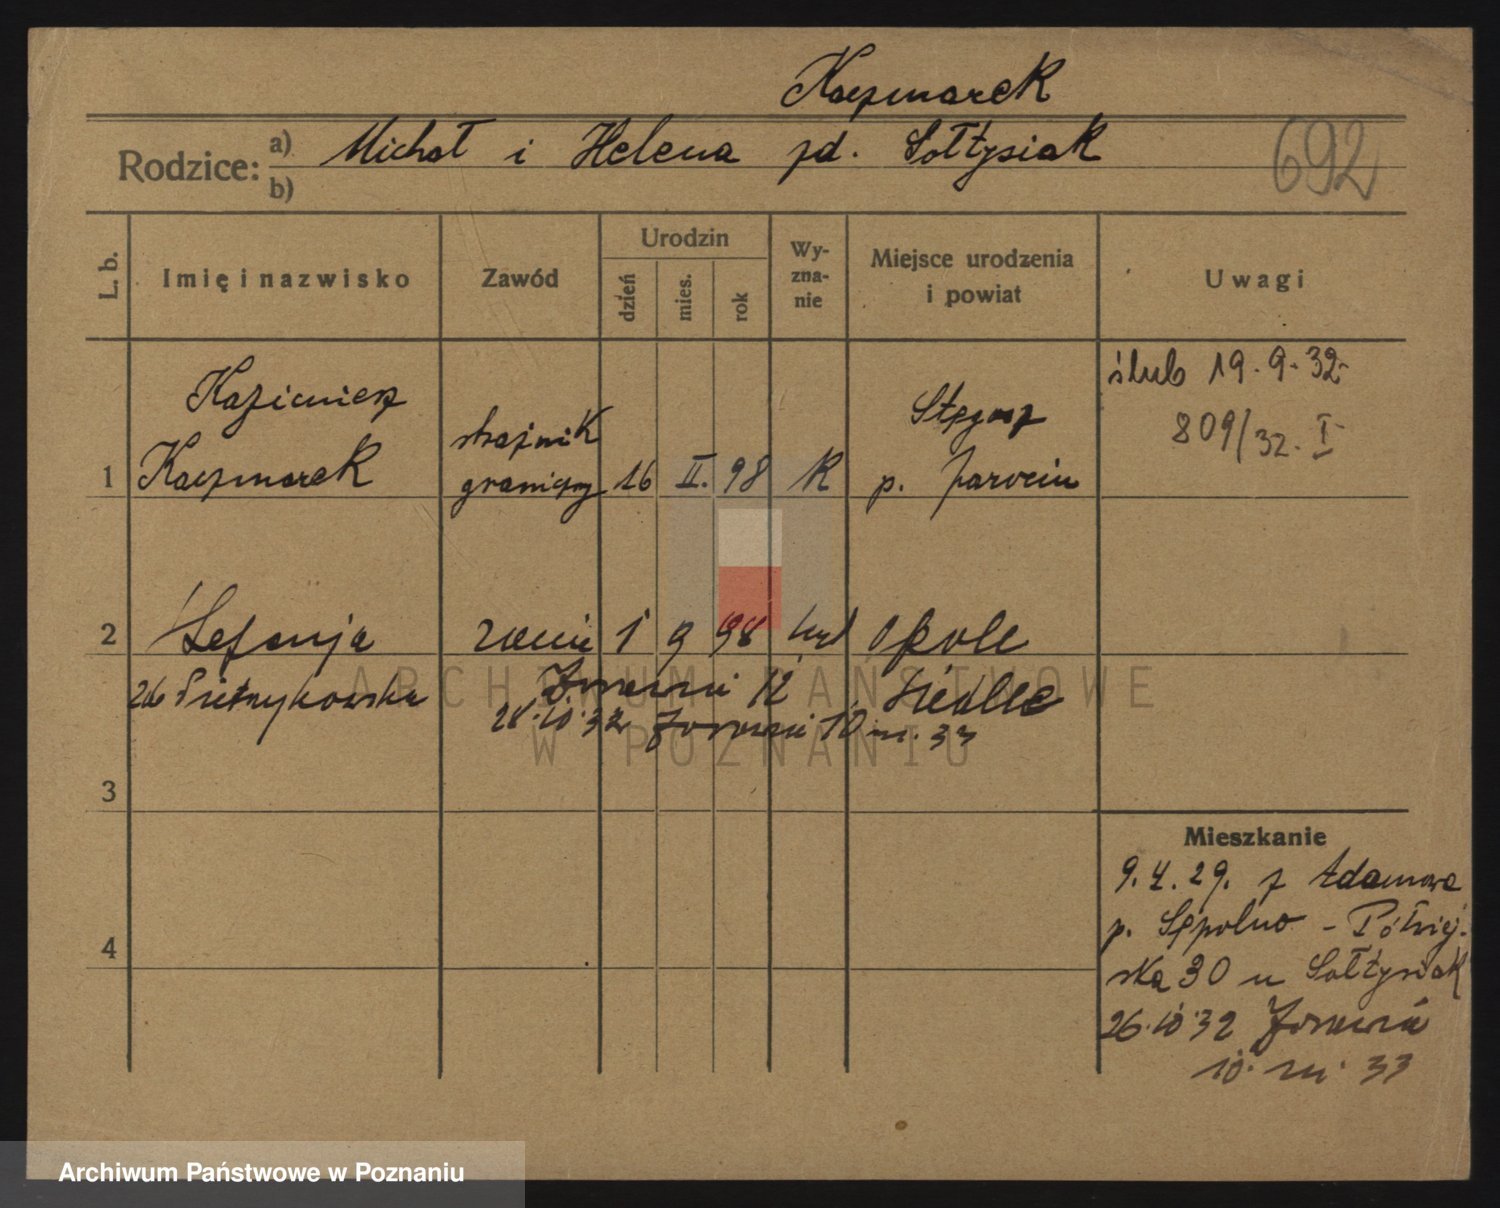 Kaczmarek
Rodzice: a) Michał i Helena zd. Sołtysiak
b)
692
L. b.
Imię i nazwisko
Zawód
Urodzin
dzień
mies.
rok
Wy-
zna-
nie
Miejsce urodzenia
i powiat
Uwagi
Kazimierz
Kaczmarek
strażnik
graniczny
1
16 II. 98 K
p. Jarocin
ślub 19.9.32
809/32. I
2
1 9 98
Opole
Siedlce
28.10.32
10
33
3
4
Mieszkanie
9.4.29. z Adamowa
p. Sępolno - Półwiej-
ska 30 u Sołtysiak
26.10.32
10. 33
ARCHIWUM PAŃSTWOWE
W POZNANIU
Archiwum Państwowe w Poznaniu